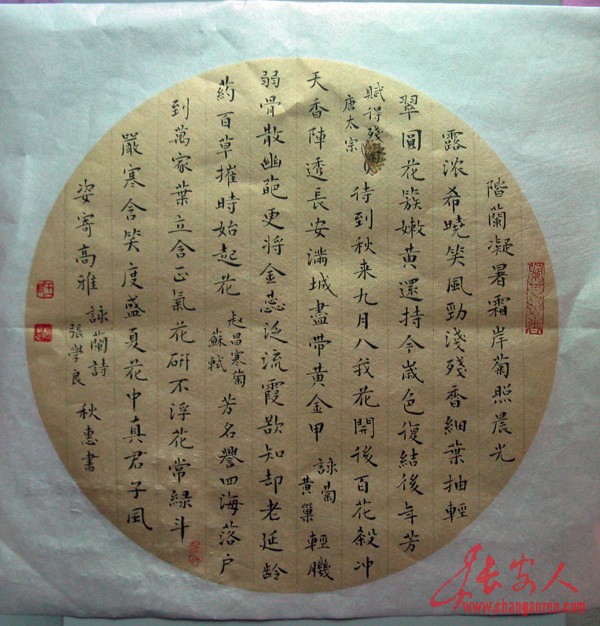 階蘭凝暑霜岸菊照晨光
露浓希曉笑風勁淺殘香細葉抽輕
翠圓花簇嫩黃還持今歲色復結後年芳
賦得殘菊
唐太宗
待到秋来九月八我花開後百花殺冲
天香陣透長安滿城盡帶黄金甲
詠菊
黄巢
輕肌
弱骨散幽葩更將金蕊泛流霞欲知却老延齡
葯百草摧時始起花
赵昌寒菊
蘇軾
芳名譽四海落户
到萬家葉立含正氣花研不浮花常緑斗
嚴寒含笑度盛夏花中真君子風
姿寄高雅
詠蘭詩
張學良
秋惠書
长安人
www.changanren.com